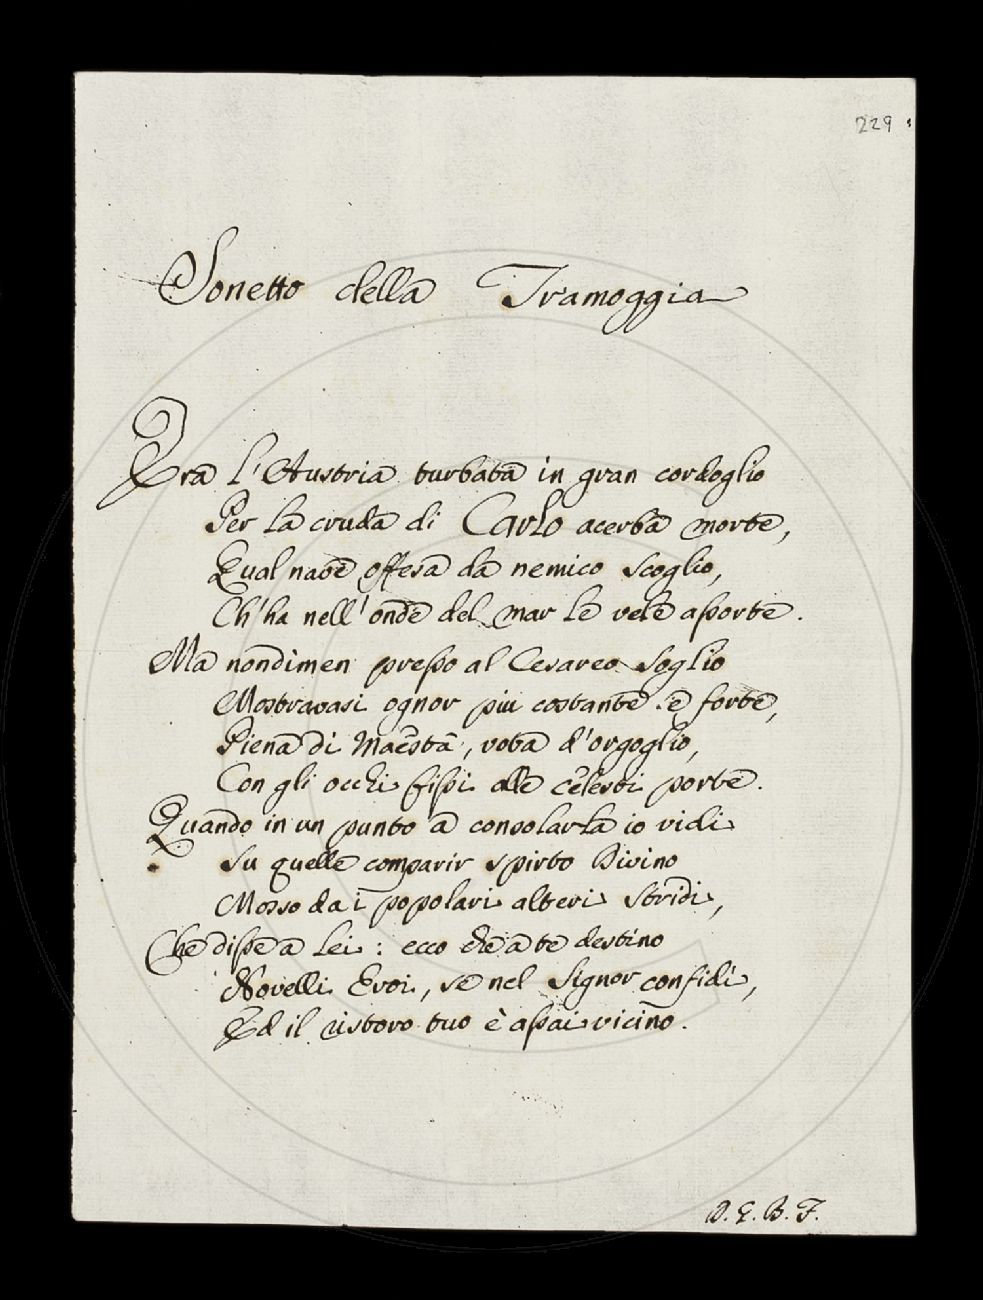 229
Sonetto della Tramoggia
Era l'Austria turbata in gran cordoglio
Per la cruda di Carlo acerba morte,
Qual nave offesa da nemico scoglio,
Ch'ha nell'onde del mar le vele assorte.
Ma nondimen presso al Cesareo Soglio
Mostravasi ognor piu costante e forte,
Piena di Maestà, vota d'orgoglio,
Con gli occhi fissi alle celesti porte.
Quando in un punto a consolarla io vidi
Su quelle comparir spirto Divino
Mosso dai popolari alteri stridi,
Che disse a lei: ecco che a te destino
Novelli Eroi, se nel Signor confidi,
Ed il ristoro tuo è assai vicino.
D. G. B. F.